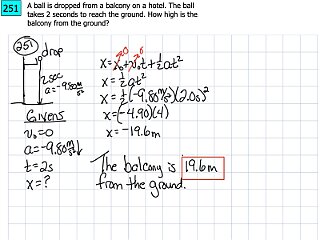 251
A ball is dropped from a balcony on a hotel. The ball
takes 2 seconds to reach the ground. How high is the
balcony from the ground?
251
drop
2sec
a=-9.80m/s²
Givens
v₀=0
a=-9.80m/s²↓
t=2s
x=?
x=x₀+v₀t+½at²
x=½at²
x=½(-9.80m/s²)(2.0s)²
x=(-4.90)(4)
x=-19.6m
The balcony is 19.6m
from the ground.